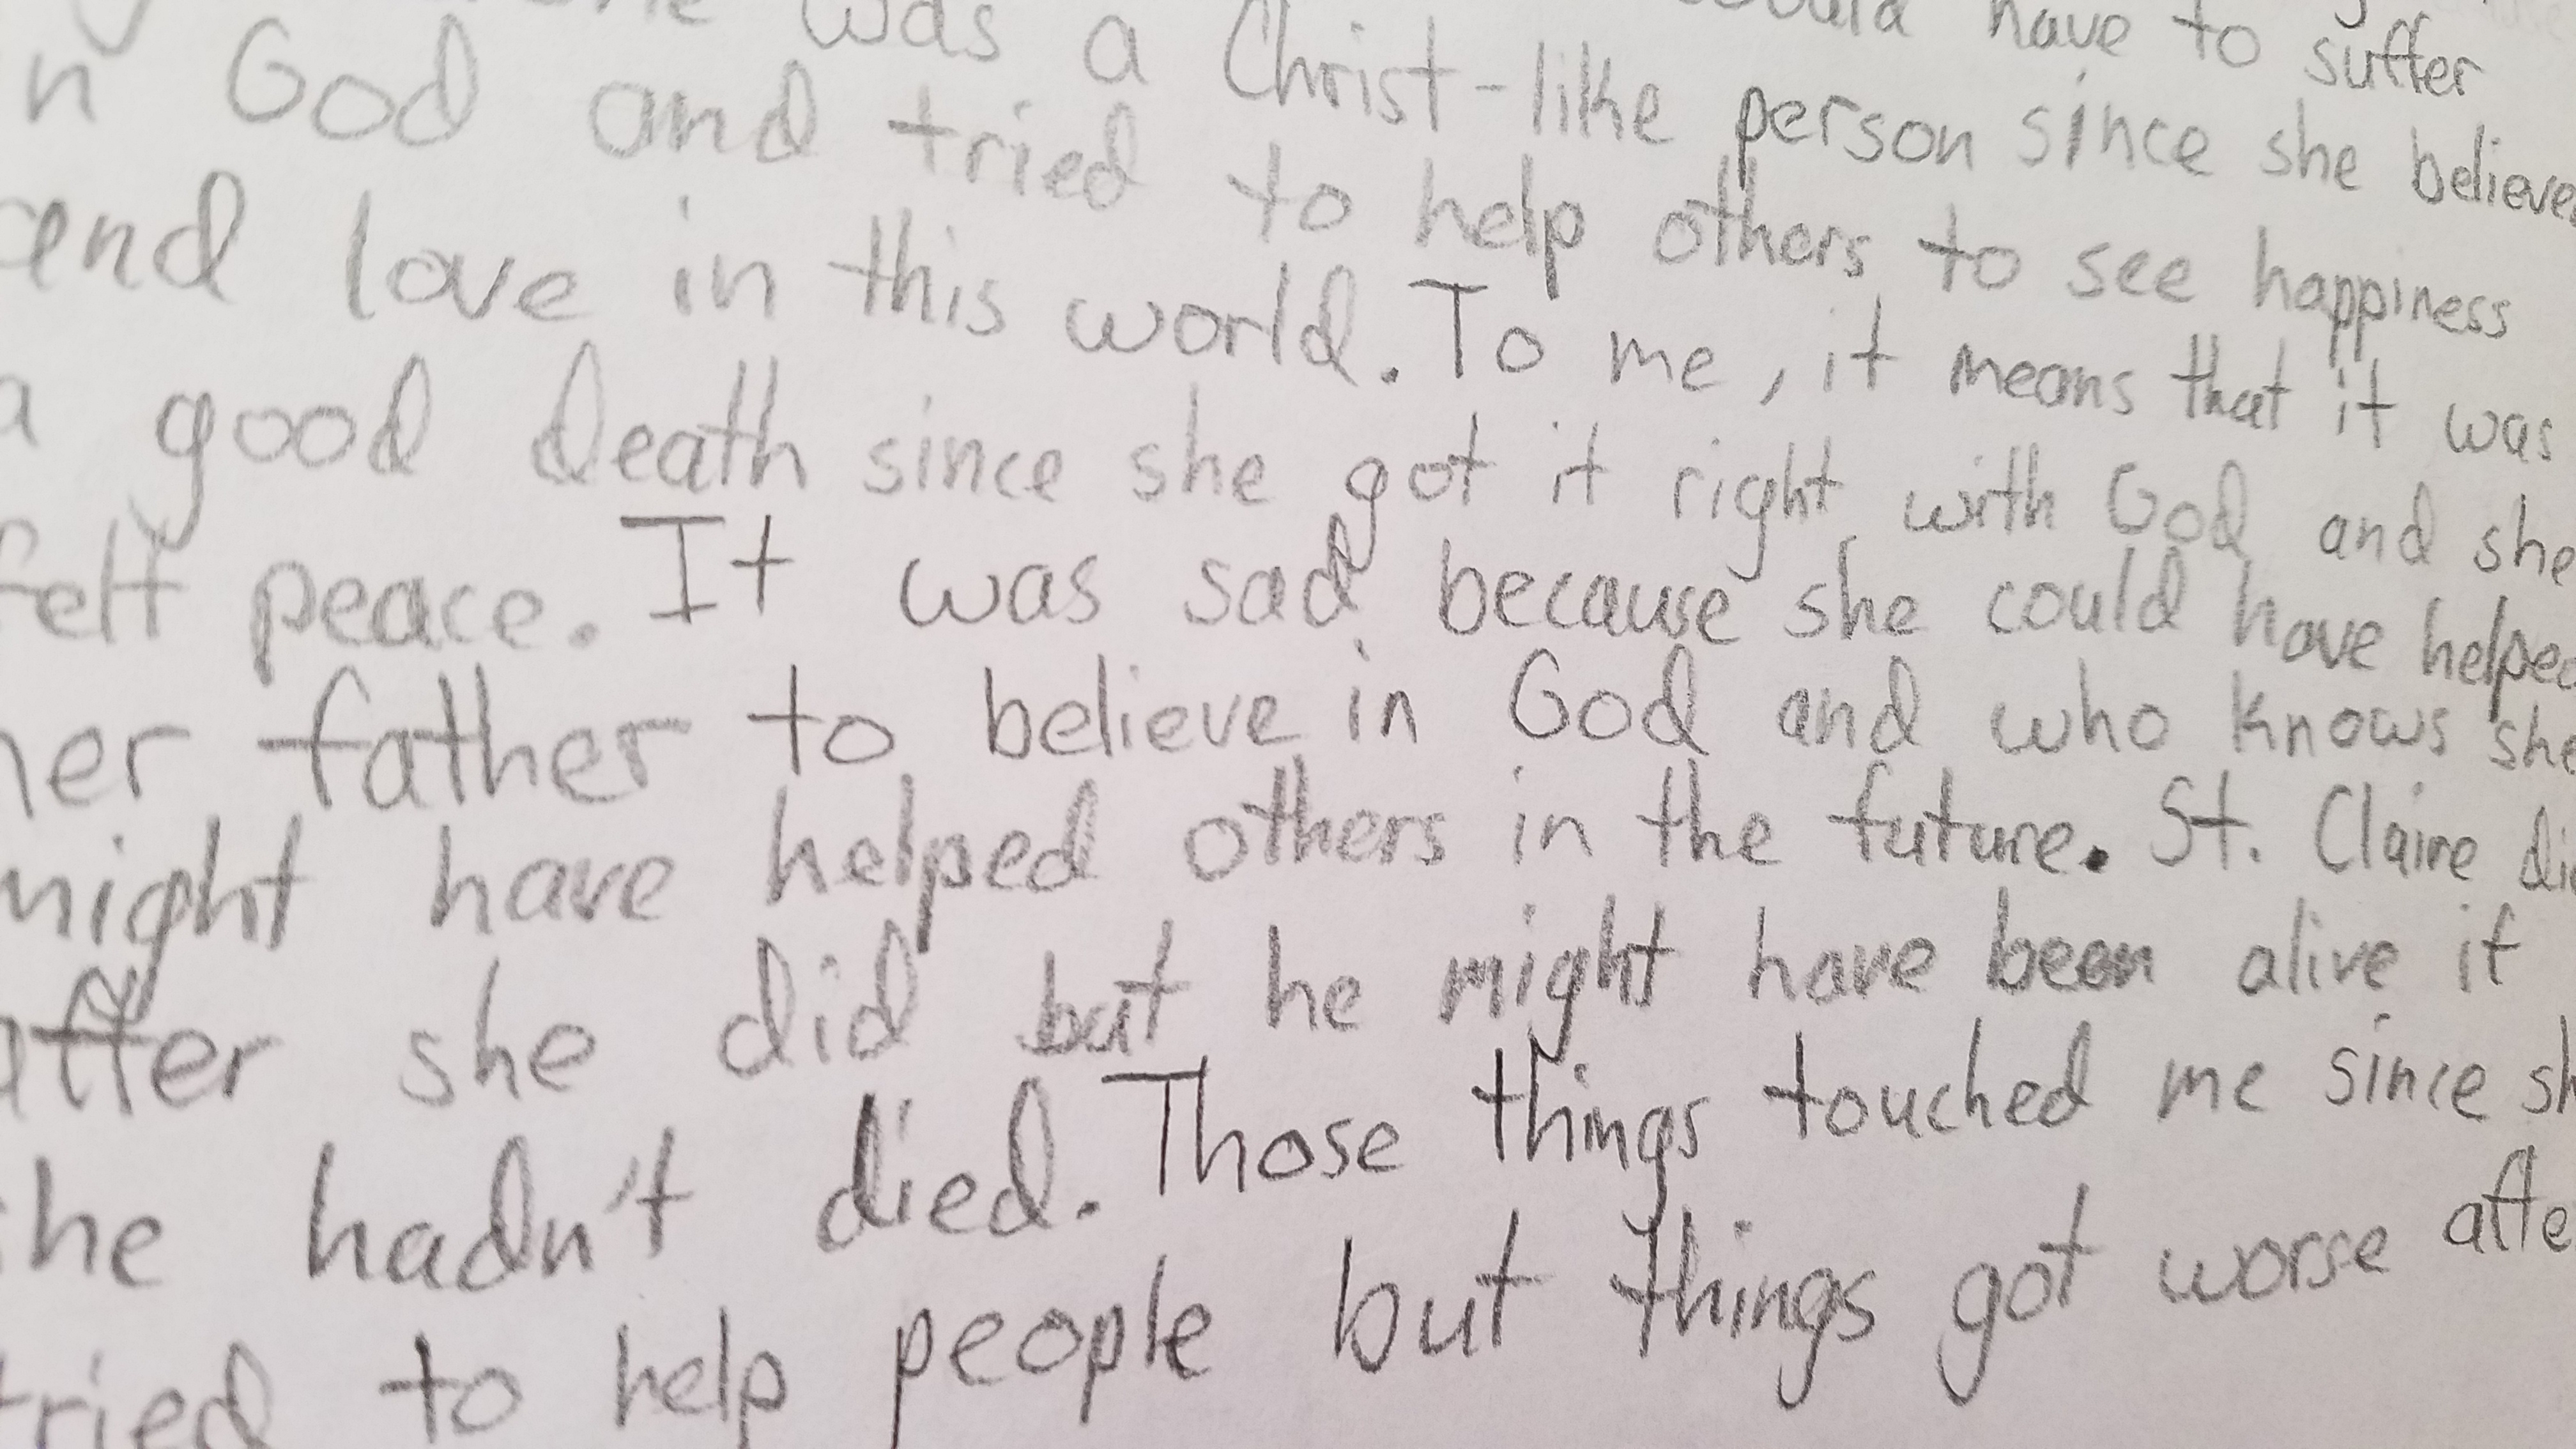 have to suffer
was a Christ-like person since she believe
n God and tried to help others to see happiness
and love in this world. To me, it means that it was
a good death since she got it right with God and she
felt peace. It was sad because she could have helped
her father to believe in God and who knows she
might have helped others in the future. St. Claire di
after she did but he might have been alive if
she hadn't died. Those things touched me since sh
tried to help people but things got worse afte